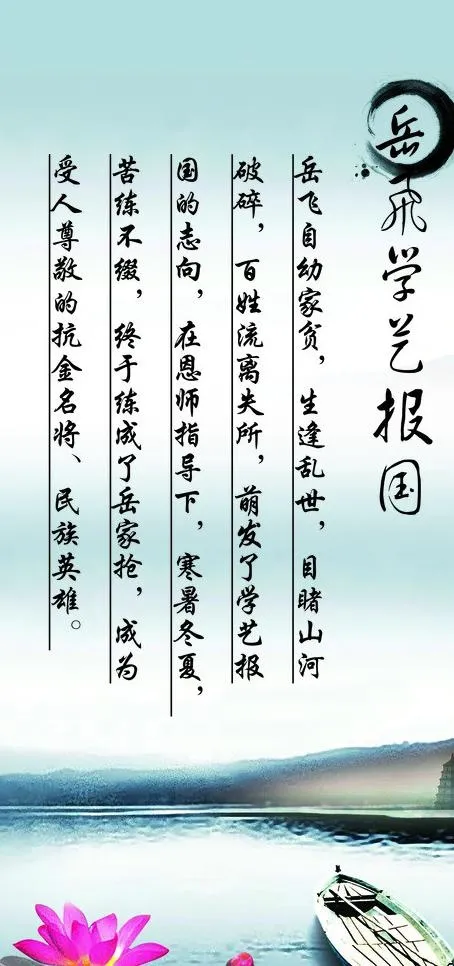 岳飛学艺报国
岳飞自幼家贫，生逢乱世，目睹山河
破碎，百姓流离失所，萌发了学艺报
国的志向，在恩师指导下，寒暑冬夏，
苦练不缀，终于练成了岳家抢，成为
受人尊敬的抗金名将、民族英雄。